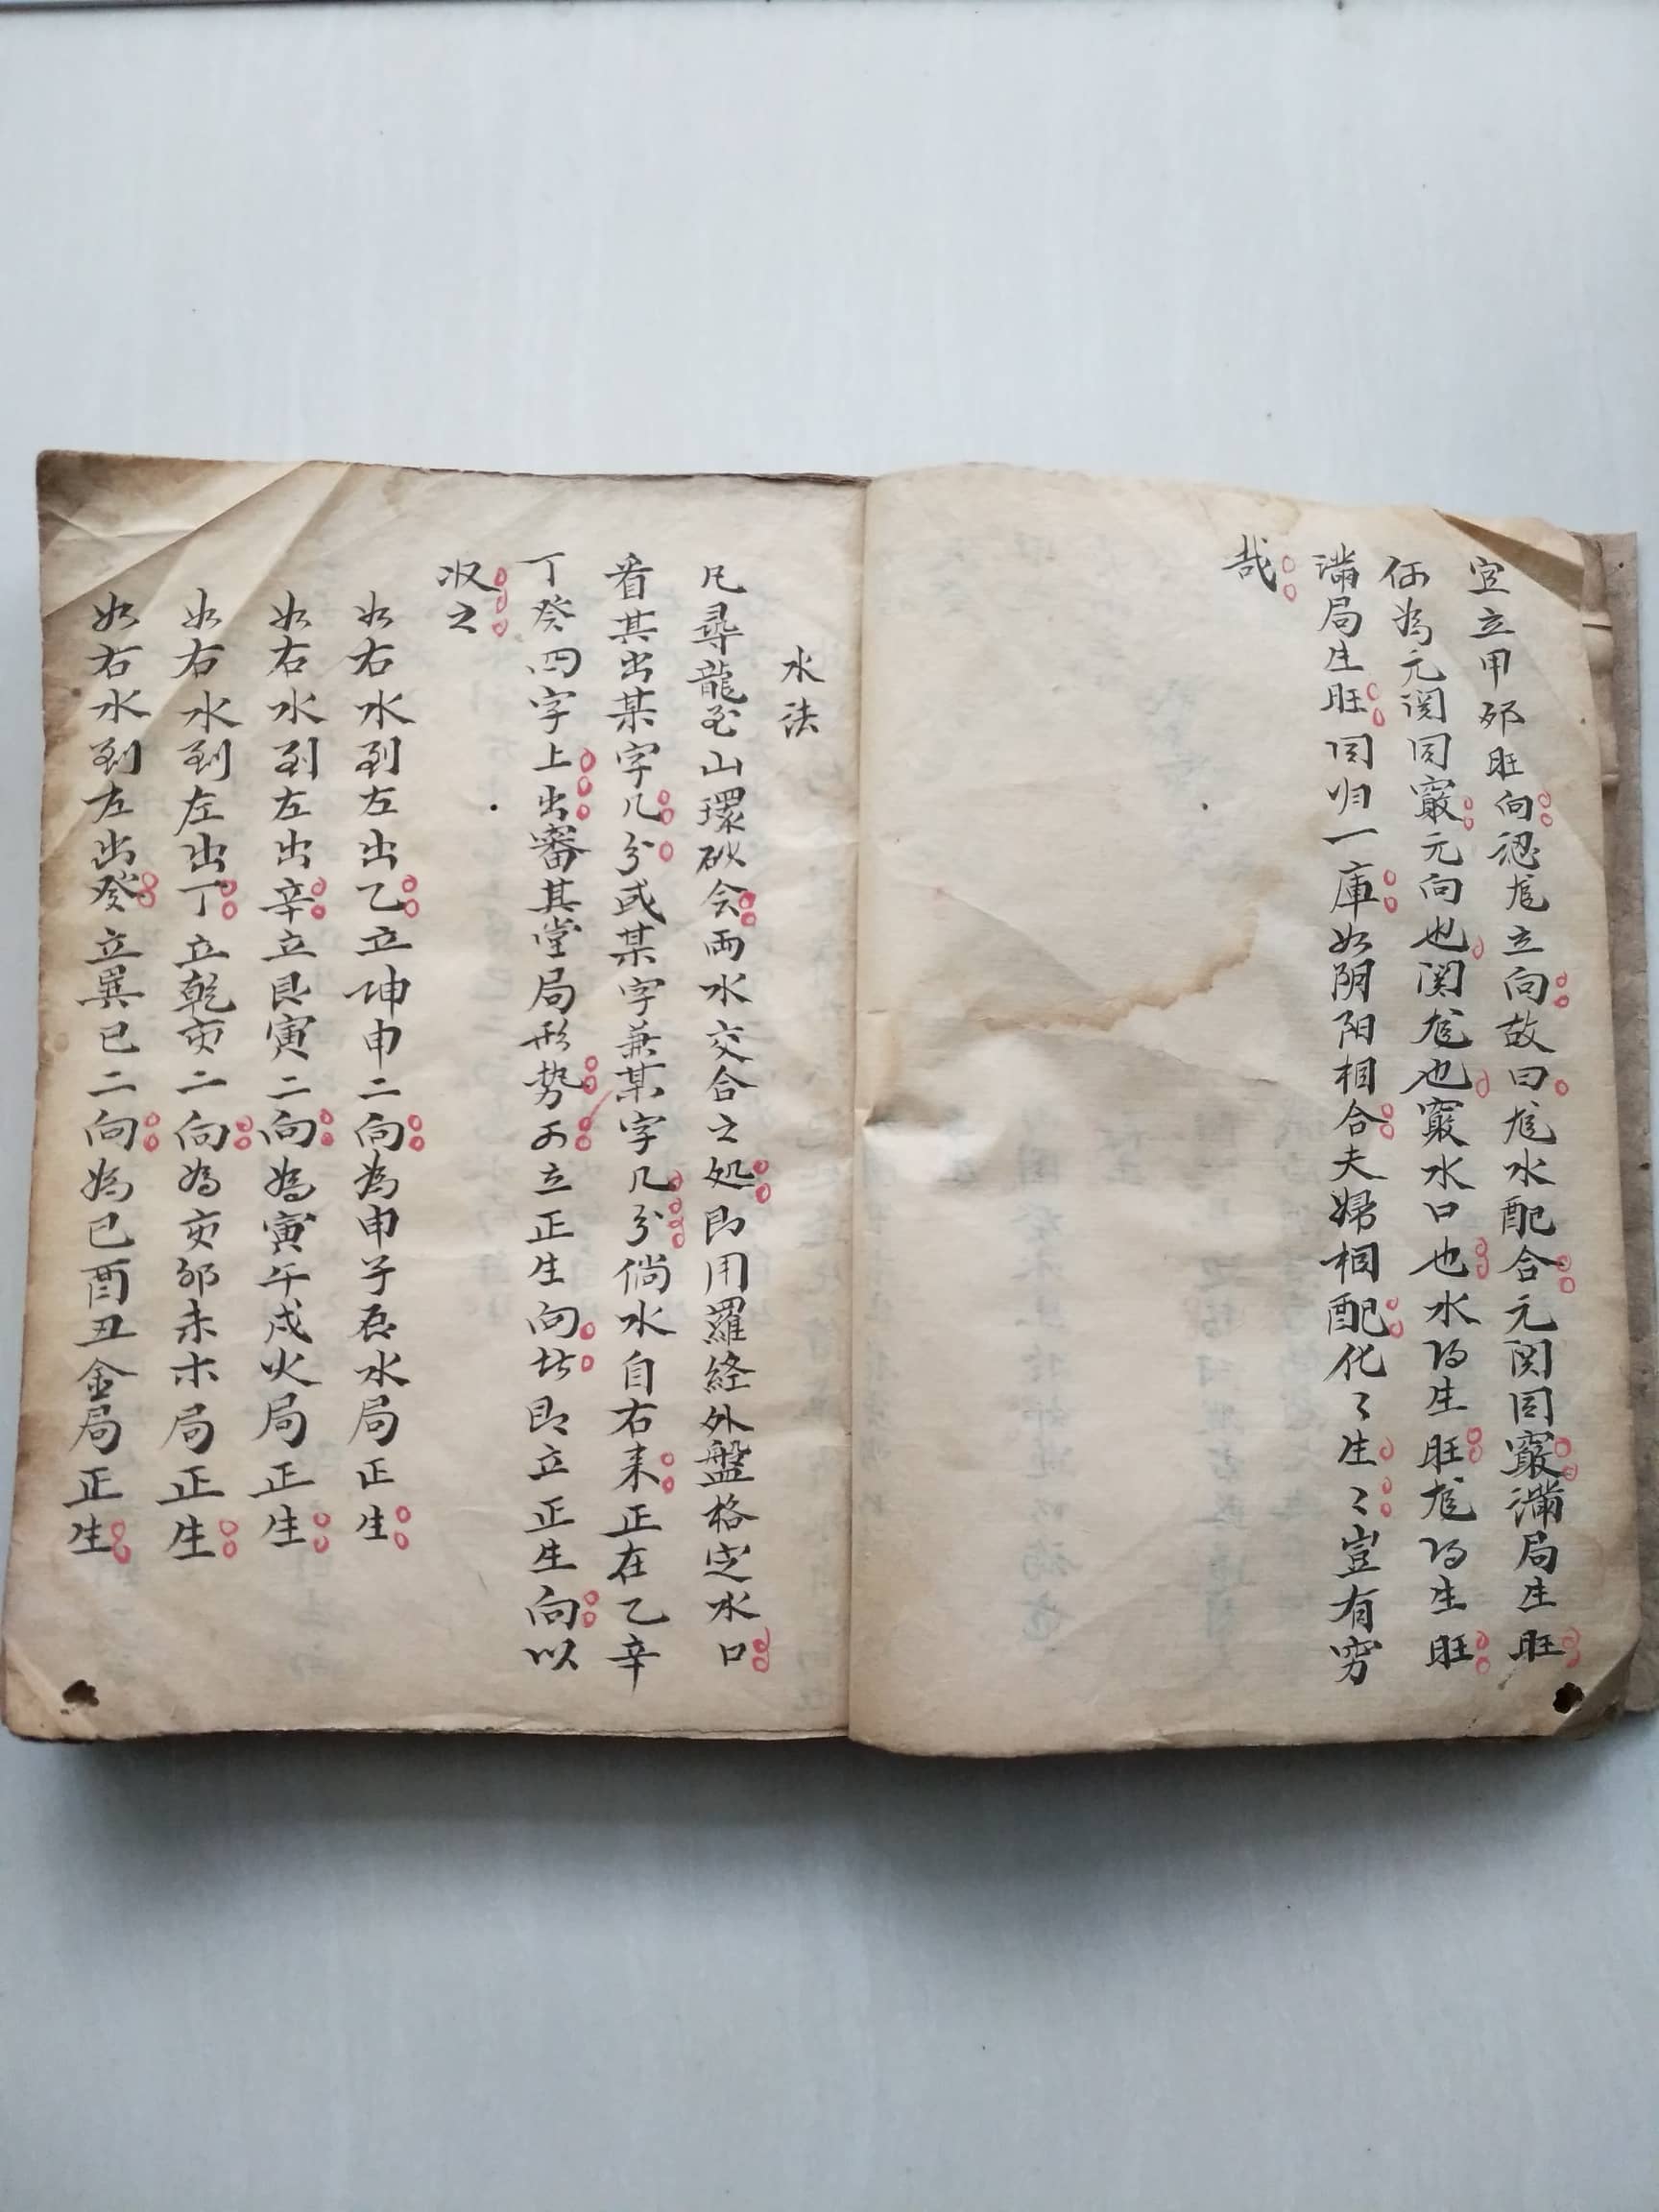 宜立甲卯旺向認尨立向故曰尨水配合元関同竅滿局生旺
何為元関同竅元向也関尨也竅水口也水得生旺尨得生旺
滿局生旺同归一庫如阴阳相合夫婦相配化〻生〻豈有穷
哉
水法
凡尋龍至山環砂会両水交合之処即用羅経外盤格定水口
看其出某字几分或某字兼某字几分倘水自右来正在乙辛
丁癸四字上出審其堂局形势可立正生向者即立正生向以
収之
如右水到左出乙立坤申二向為申子辰水局正生
如右水到左出辛立艮寅二向為寅午戌火局正生
如右水到左出丁立乾亥二向為亥卯未木局正生
如右水到左出癸立巽巳二向為巳酉丑金局正生